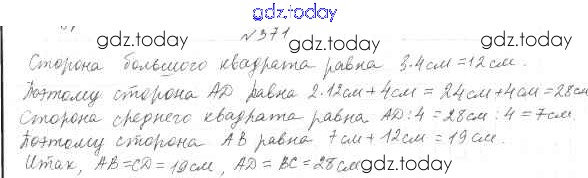 gdz.today
№371
gdz.today gdz.today
Сторона большого квадрата равна 3·4см=12см.
Поэтому сторона AD равна 2·12см+4см=24см+4см=28см
Сторона среднего квадрата равна AD:4=28см:4=7см.
Поэтому сторона AB равна 7см+12см=19см.
Итак, AB=CD=19см, AD=BC=28см
gdz.today gdz.today